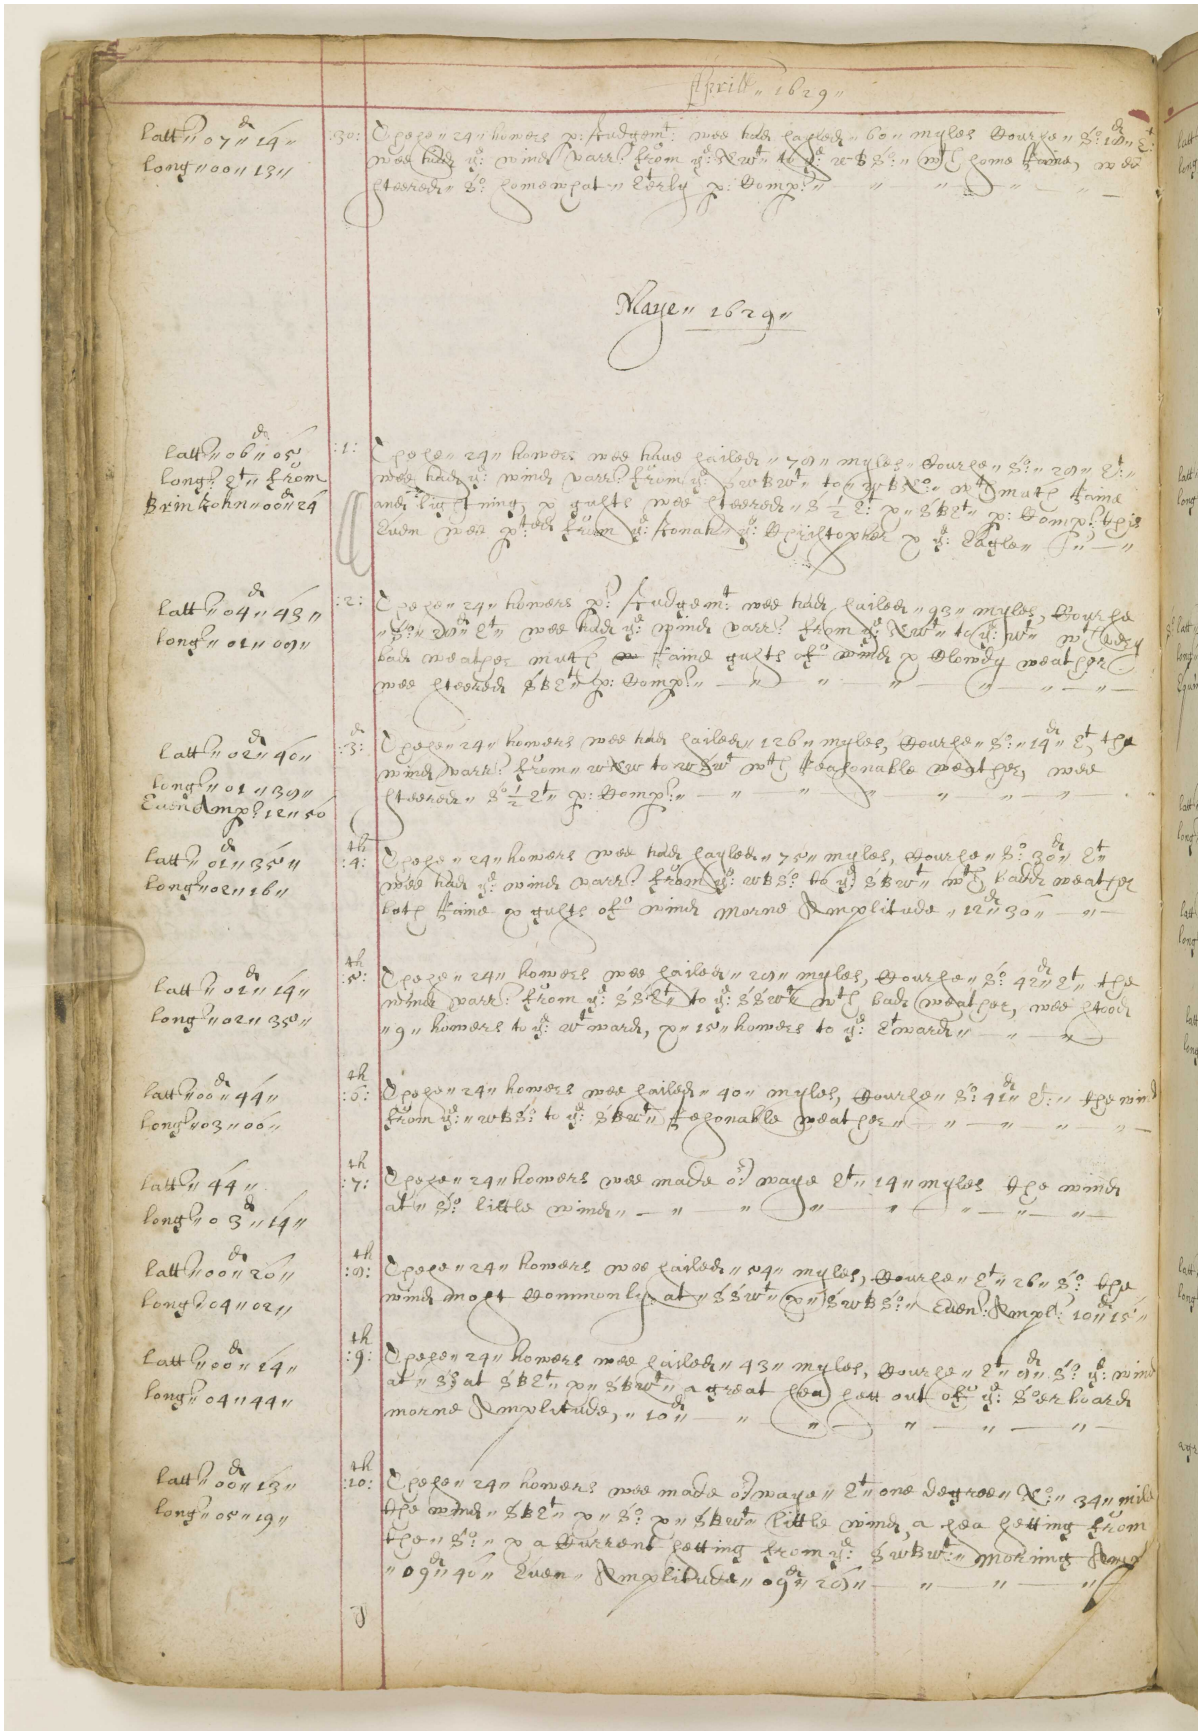 Aprill „ 1629 „
lattd „ 07d „ 14 „
longd „ 00 „ 13 „
:30: These „ 24 „ howers p: Judgemt: wee had sayled „ 60 „ myles Course „ So: 10d „ Et:
wee had ye: wind varr: from ye: NWt „ to ye WBSo: „ wth some Raine, wee
steered „ So: somewhat „ Eterly p: Comp: „
Maye „ 1629 „
lattd „ 06d „ 05
longd Et „ from
Brin John „ 00d „ 24
:1: These „ 24 „ howers wee haue sailed „ 79 „ myles „ Course „ So: „ 29 „ Et: „
wee had ye: wind varr: from ye: SWBWt „ to „ WBNo: „ wth much Raine
and lightning, & gusts wee steered „ S ½ E: & „ SBEt „ p: Comp: this
Euen wee pted from ye: Jonah „ ye: Christopher & ye: Eagle „
lattd „ 04d „ 43 „
longd „ 01 „ 09 „
:2: These „ 24 „ howers p: Judgemt: wee had sailed „ 93 „ myles, Course
„ So: „ 29d „ Et „ wee had ye wind varr: from ye: NWt „ to ye: Wt „ wth very
bad weather much Raine gusts of wind & Clowdy weather
wee steered SBEt „ p: Comp: „
lattd „ 02d „ 40 „
longd „ 01 „ 39 „
Euen Ampl: 12 „ 50
:3: These „ 24 „ howers wee had sailed „ 126 „ myles, Course „ So: „ 14d „ Et the
wind varr: from „ WNW to WSWt wth Reasonable weather, wee
steered „ So ½ Et „ p: Comp: „
lattd „ 01d „ 35 „
longd „ 02 „ 16 „
th
:4: These „ 24 „ howers wee had sayled „ 75 „ myles, Course „ So: 30d „ Et „
wee had ye wind varr: from ye: WBSo: to ye: SBWt „ wth badd weather
both Raine & gusts of wind morne Amplitude „ 12d „ 30 „
lattd „ 01d „ 14 „
longd „ 02 „ 35 „
th
:5: These „ 24 „ howers wee sailed „ 29 „ myles, Course „ So: 42d „ Et, the
wind varr: from ye: SSEt „ to ye: SSWt „ wth bad weather, wee stood
„ 9 „ howers to ye: Wtward, & „ 15 „ howers to ye: Etward „
lattd „ 00d „ 44 „
longd „ 03 „ 00 „
th
:6: These „ 24 „ howers wee sailed „ 40 „ myles, Course „ So: 41d „ Et: „ the wind
from ye: „ WBSo: to ye: SBWt „ Resonable weather „
lattd „ 44 „
longd „ 03d „ 14 „
th
:7: These „ 24 „ howers wee made or waye Et „ 14 „ myles the wind
at „ So: little wind „
lattd „ 00d „ 20 „
longd „ 04 „ 02 „
th
:8: These „ 24 „ howers wee sailed „ 54 „ myles, Course „ Et „ 26 „ So: the
wind most Commonly at „ SSWt „ & „ SWBSo: „ Euen: Ampl: 10d „ 15 „
lattd „ 00d „ 14 „
longd „ 04 „ 44 „
th
:9: These „ 24 „ howers wee sailed „ 43 „ myles, Course „ Et „ 8d „ So: ye: wind
at „ So at SBEt „ & „ SBWt „ a great sea sett out of ye: Soerboard
morne Amplitude, „ 10d „
lattd „ 00d „ 13 „
longd „ 05 „ 19 „
th
:10: These „ 24 „ howers wee made or waye „ Et „ one degree „ No: „ 34 „ mile
the wind „ SBEt „ & „ So: & „ SBWt „ little wind, a sea setting from
the „ So: „ & a Current setting from ye: SWBWt: „ morning Amp
„ 09d „ 40 „ Euen „ Amplitude „ 09d „ 20 „